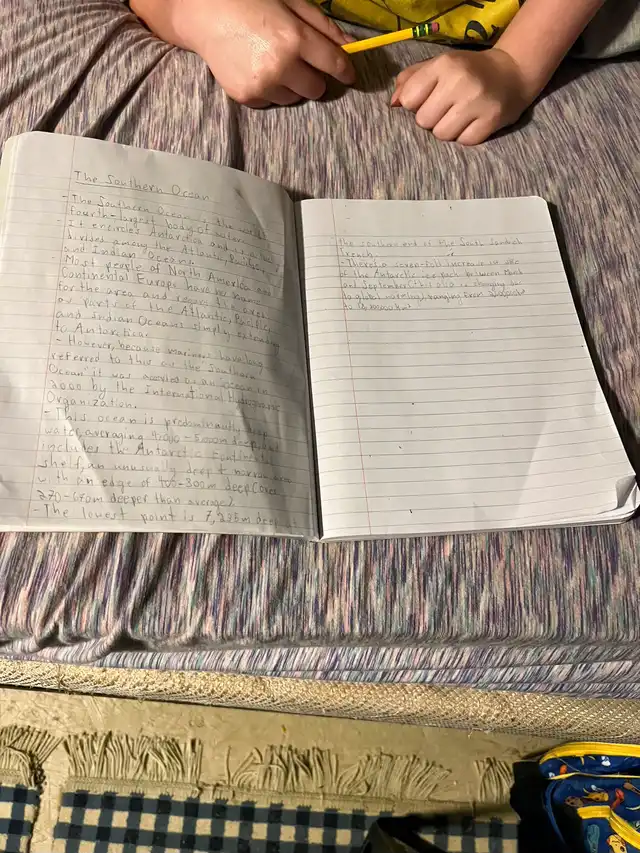 The Southern Ocean
- The Southern Ocean is the world's
fourth-largest body of water.
It encircles Antarctica and is actually
divided among the Atlantic, Pacific,
and Indian Oceans.
- Most people of North America and
Continental Europe have no name
for the area and regard the area
as parts of the Atlantic, Pacific,
and Indian Oceans simply extending
to Antarctica.
- However, because mariners have long
referred to this as "the Southern
Ocean" it was accepted as an ocean in
2000 by the International Hydrographic
Organization.
- This ocean is predominantly
water averaging 4,000-5,000m deep
includes the Antarctic continental
shelf, an unusually deep & narrow area
with an edge of 400-800m deep
270-670m deeper than average)
- The lowest point is 7,235m deep
the southern end of the South Sandwich
trench.
- There's a seven-fold increase in size
of the Antarctic ice pack between March
and September
to